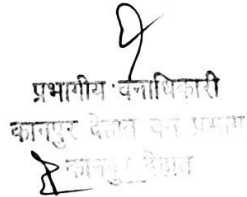 प्रभागीय वनाधिकारी
कानपुर देहात वन प्रभाग
कानपुर देहात